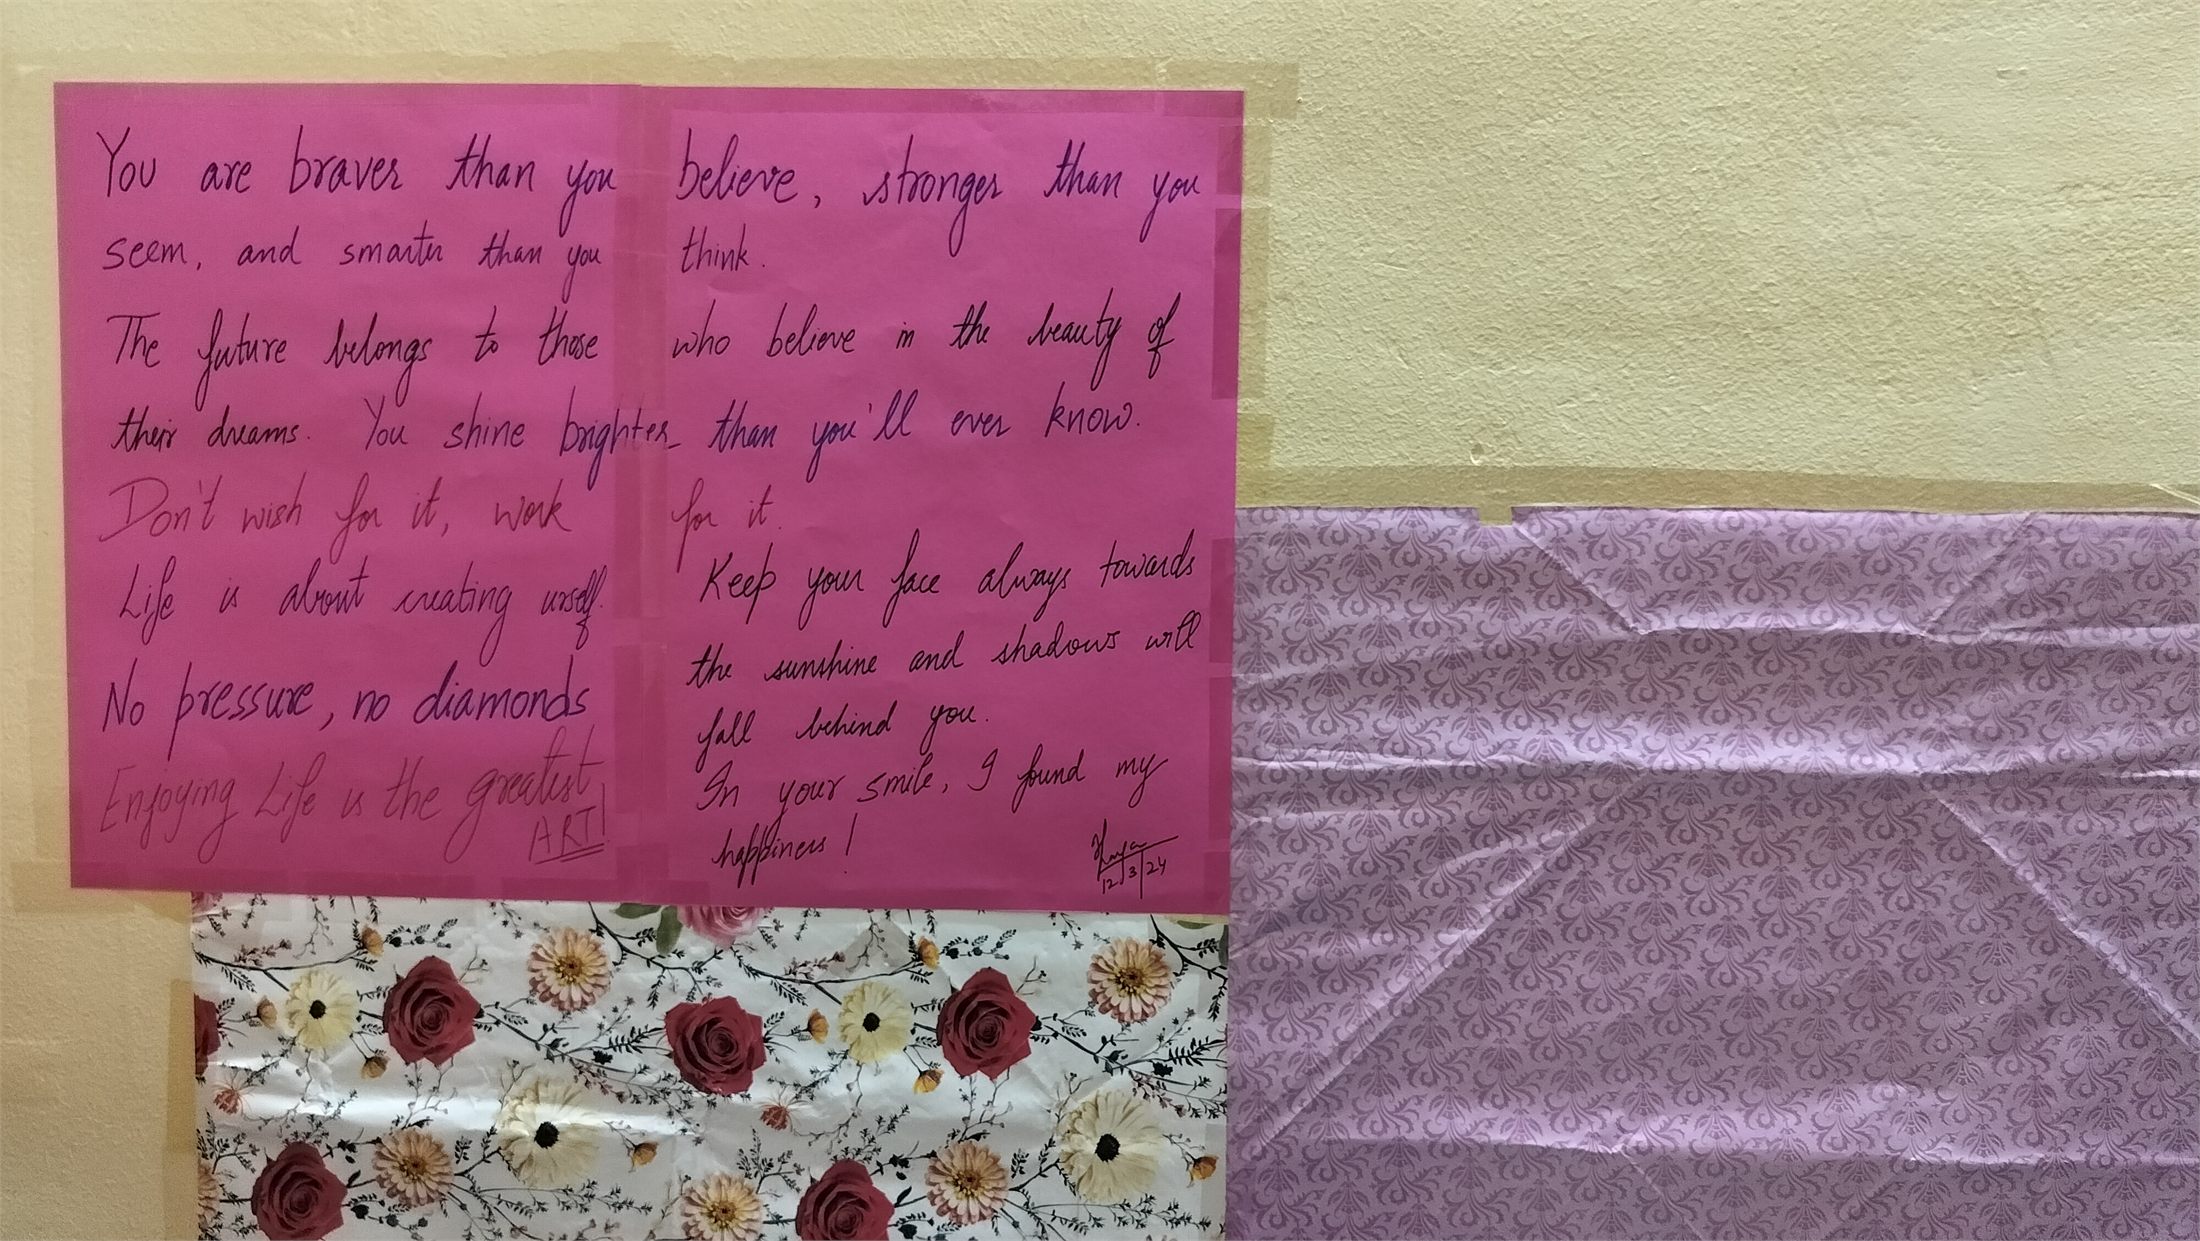 You are braver than you believe, stronger than you
seem, and smarter than you think.
The future belongs to those who believe in the beauty of
their dreams. You shine brighter than you'll ever know.
Don't wish for it, work for it.
Life is about creating urself.
No pressure, no diamonds
Enjoying Life is the greatest
ART!
Keep your face always towards
the sunshine and shadows will
fall behind you.
In your smile, I found my
happiness!
12/3/24